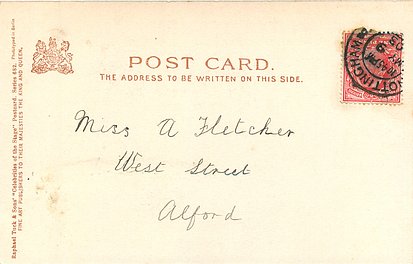 POST CARD.
THE ADDRESS TO BE WRITTEN ON THIS SIDE.
Miss A Fletcher
West Street
Alford
Raphael Tuck & Sons' "Celebrities of the Stage" Postcard. Series 652.
FINE ART PUBLISHERS TO THEIR MAJESTIES THE KING AND QUEEN.
NOTTINGHAM